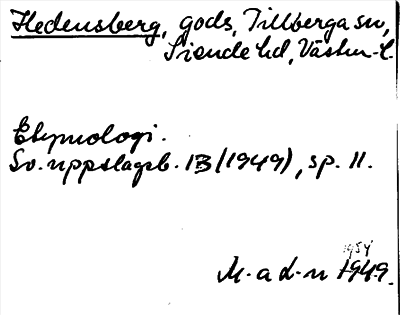 Hedensberg, gods, Tillberga sn,
Siende hd, Västm. l.
Etymologi.
Sv. uppslagsb. 13 (1949), sp. 11.
1954
M. a d. n 1949.